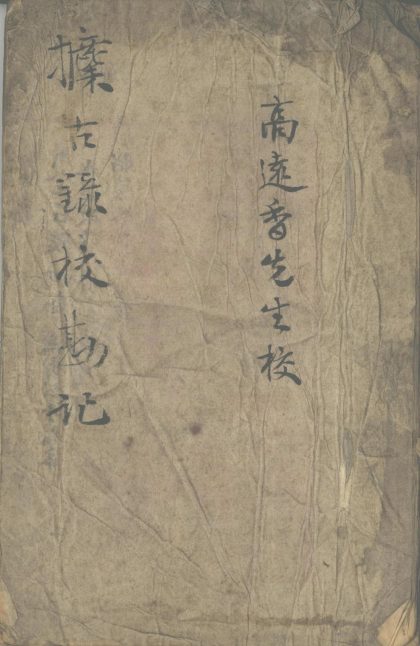 高遠香先生校
攈古錄校勘記